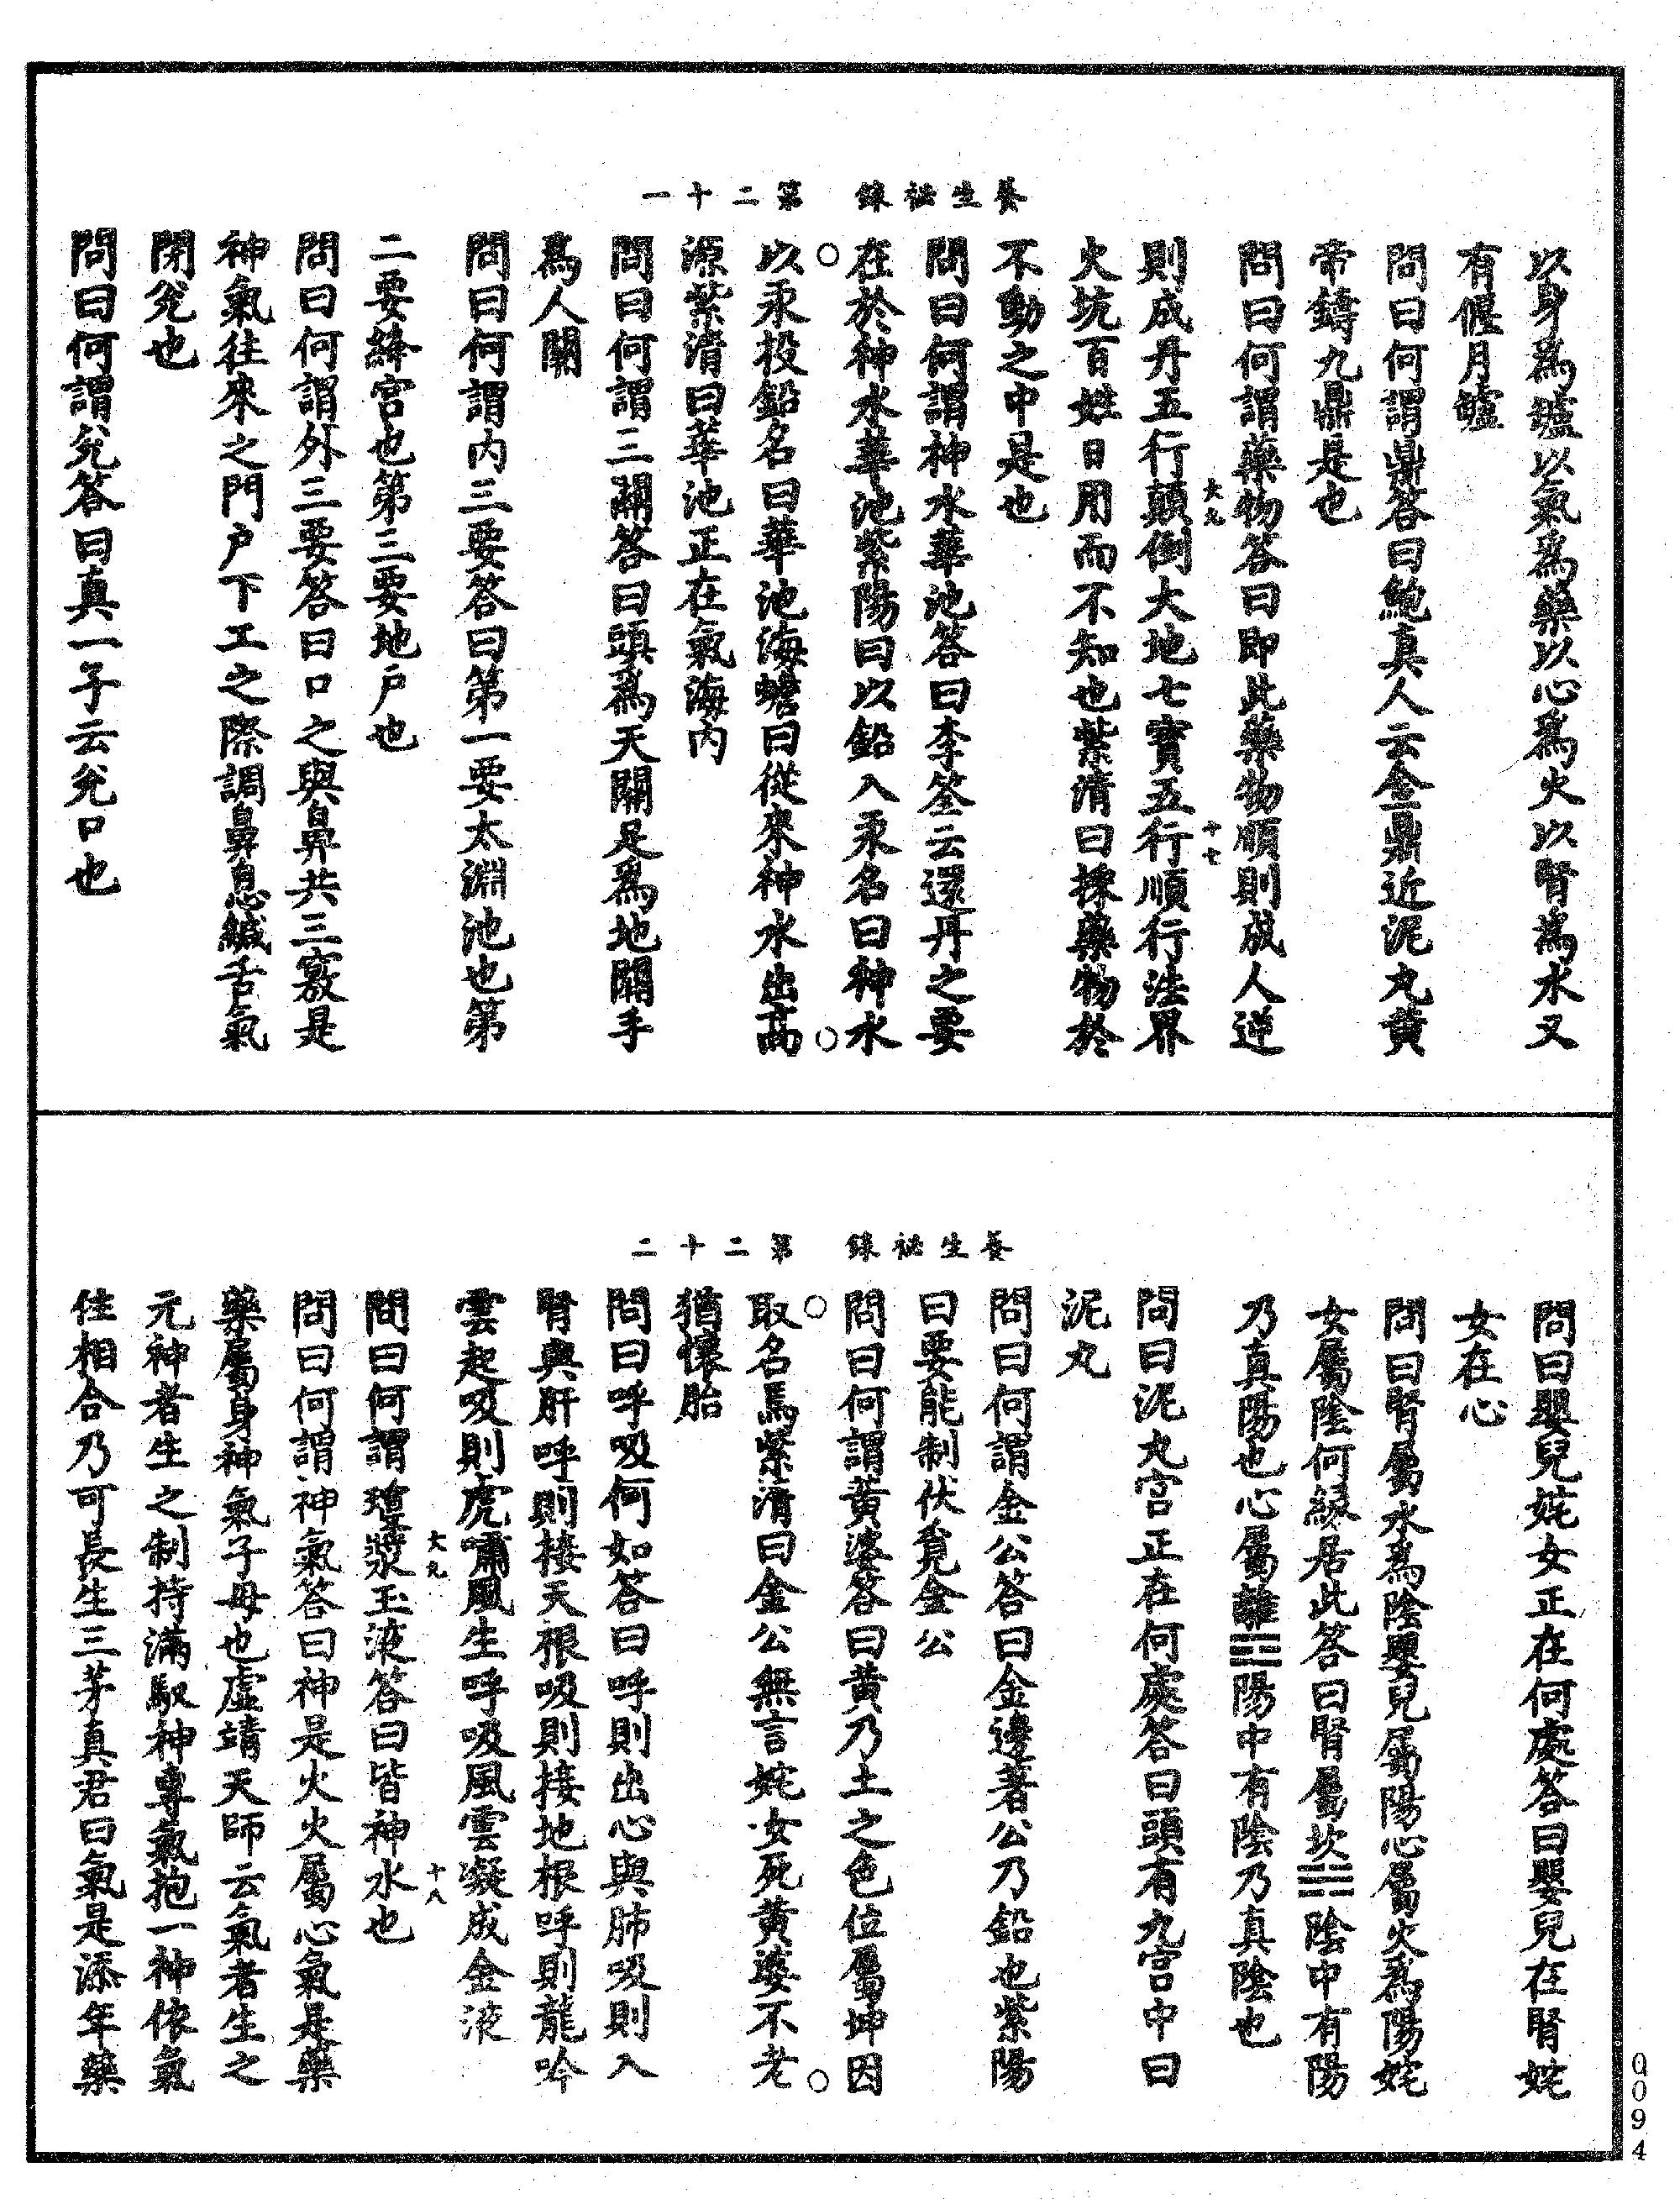 養生祕錄　第二十一
以身爲壚以氣爲藥以心爲火以腎爲水又
有偃月壚
問曰何謂鼎答曰鮑真人云金鼎近泥丸黃
帝鑄九鼎是也
問曰何謂藥物答曰即此藥物順則成人逆
大九　十七
則成丹五行顛倒大地七寶五行順行法界
火坑百姓日用而不知也紫清曰採藥物於
不動之中是也
問曰何謂神水華池答曰李筌云還丹之要
在於神水華池紫陽曰以鉛入汞名曰神水
○　○
以汞投鉛名曰華池海蟾曰從來神水出高
源紫清曰華池正在氣海內
問曰何謂三關答曰頭爲天關足爲地關手
爲人關
問曰何謂內三要答曰第一要太淵池也第
二要絳宮也第三要地戶也
問曰何謂外三要答曰口之與鼻共三竅是
神氣往來之門戶下工之際調鼻息緘舌氣
閉兌也
問曰何謂兌答曰真一子云兌口也
養生祕錄　第二十二
問曰嬰兒姹女正在何處答曰嬰兒在腎姹
女在心
問曰腎屬水爲陰嬰兒屬陽心屬火爲陽姹
女屬陰何緣居此答曰腎屬坎☵陰中有陽
乃真陽也心屬離☲陽中有陰乃真陰也
問曰泥丸宮正在何處答曰頭有九宮中曰
泥丸
問曰何謂金公答曰金邊著公乃鉛也紫陽
曰要能制伏覓金公
問曰何謂黃婆答曰黃乃土之色位屬坤因
○　○
取名焉紫清曰金公無言姹女死黃婆不老
猶懷胎
問曰呼吸何如答曰呼則出心與肺吸則入
腎與肝呼則接天根吸則接地根呼則龍吟
雲起吸則虎嘯風生呼吸風雲凝成金液
大九　十八
問曰何謂瓊漿玉液答曰皆神水也
問曰何謂神氣答曰神是火火屬心氣是藥
藥屬身神氣子母也虛靖天師云氣者生之
元神者生之制持滿馭神專氣抱一神依氣
住相合乃可長生三茅真君曰氣是添年藥
0094